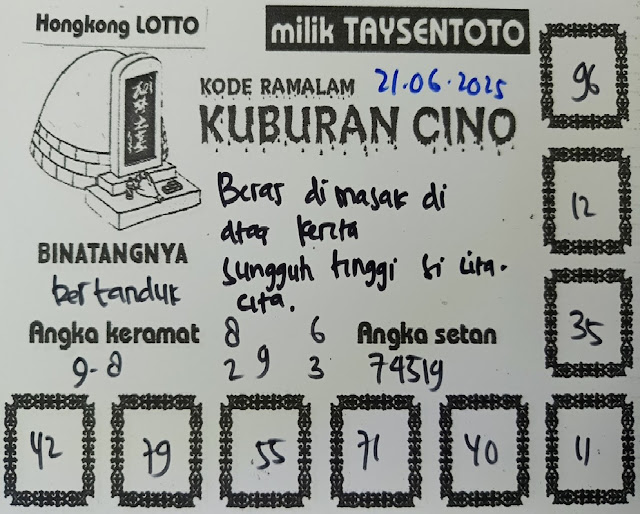 Hongkong LOTTO
milik TAYSENTOTO
KODE RAMALAM 21.06.2025
KUBURAN CINO
96
Beras di masak di
atas kerita
sungguh tinggi si cita-
cita.
12
BINATANGNYA
bertanduk
35
Angka keramat
9-8
8 6
2 9 3
Angka setan
74519
42 79 55 71 40 11